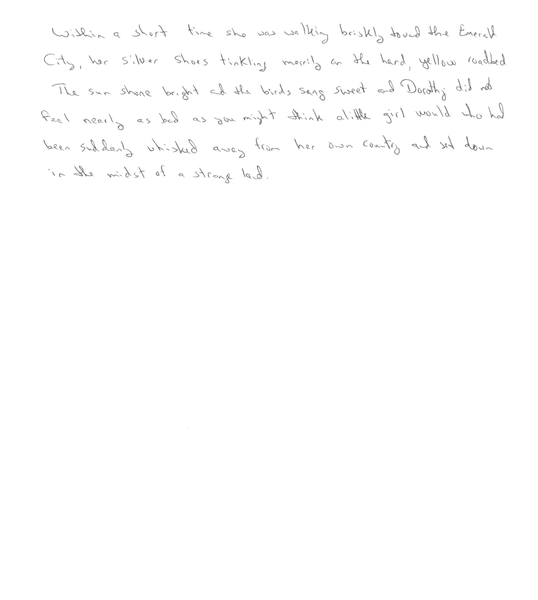 Within a short time she was walking briskly toward the Emerald
City, her Silver Shoes tinkling merrily on the hard, yellow roadbed
The sun shone bright and the birds sang sweet and Dorothy did not
feel nearly as bad as you might think a little girl would who had
been suddenly whisked away from her own country and set down
in the midst of a strange land.